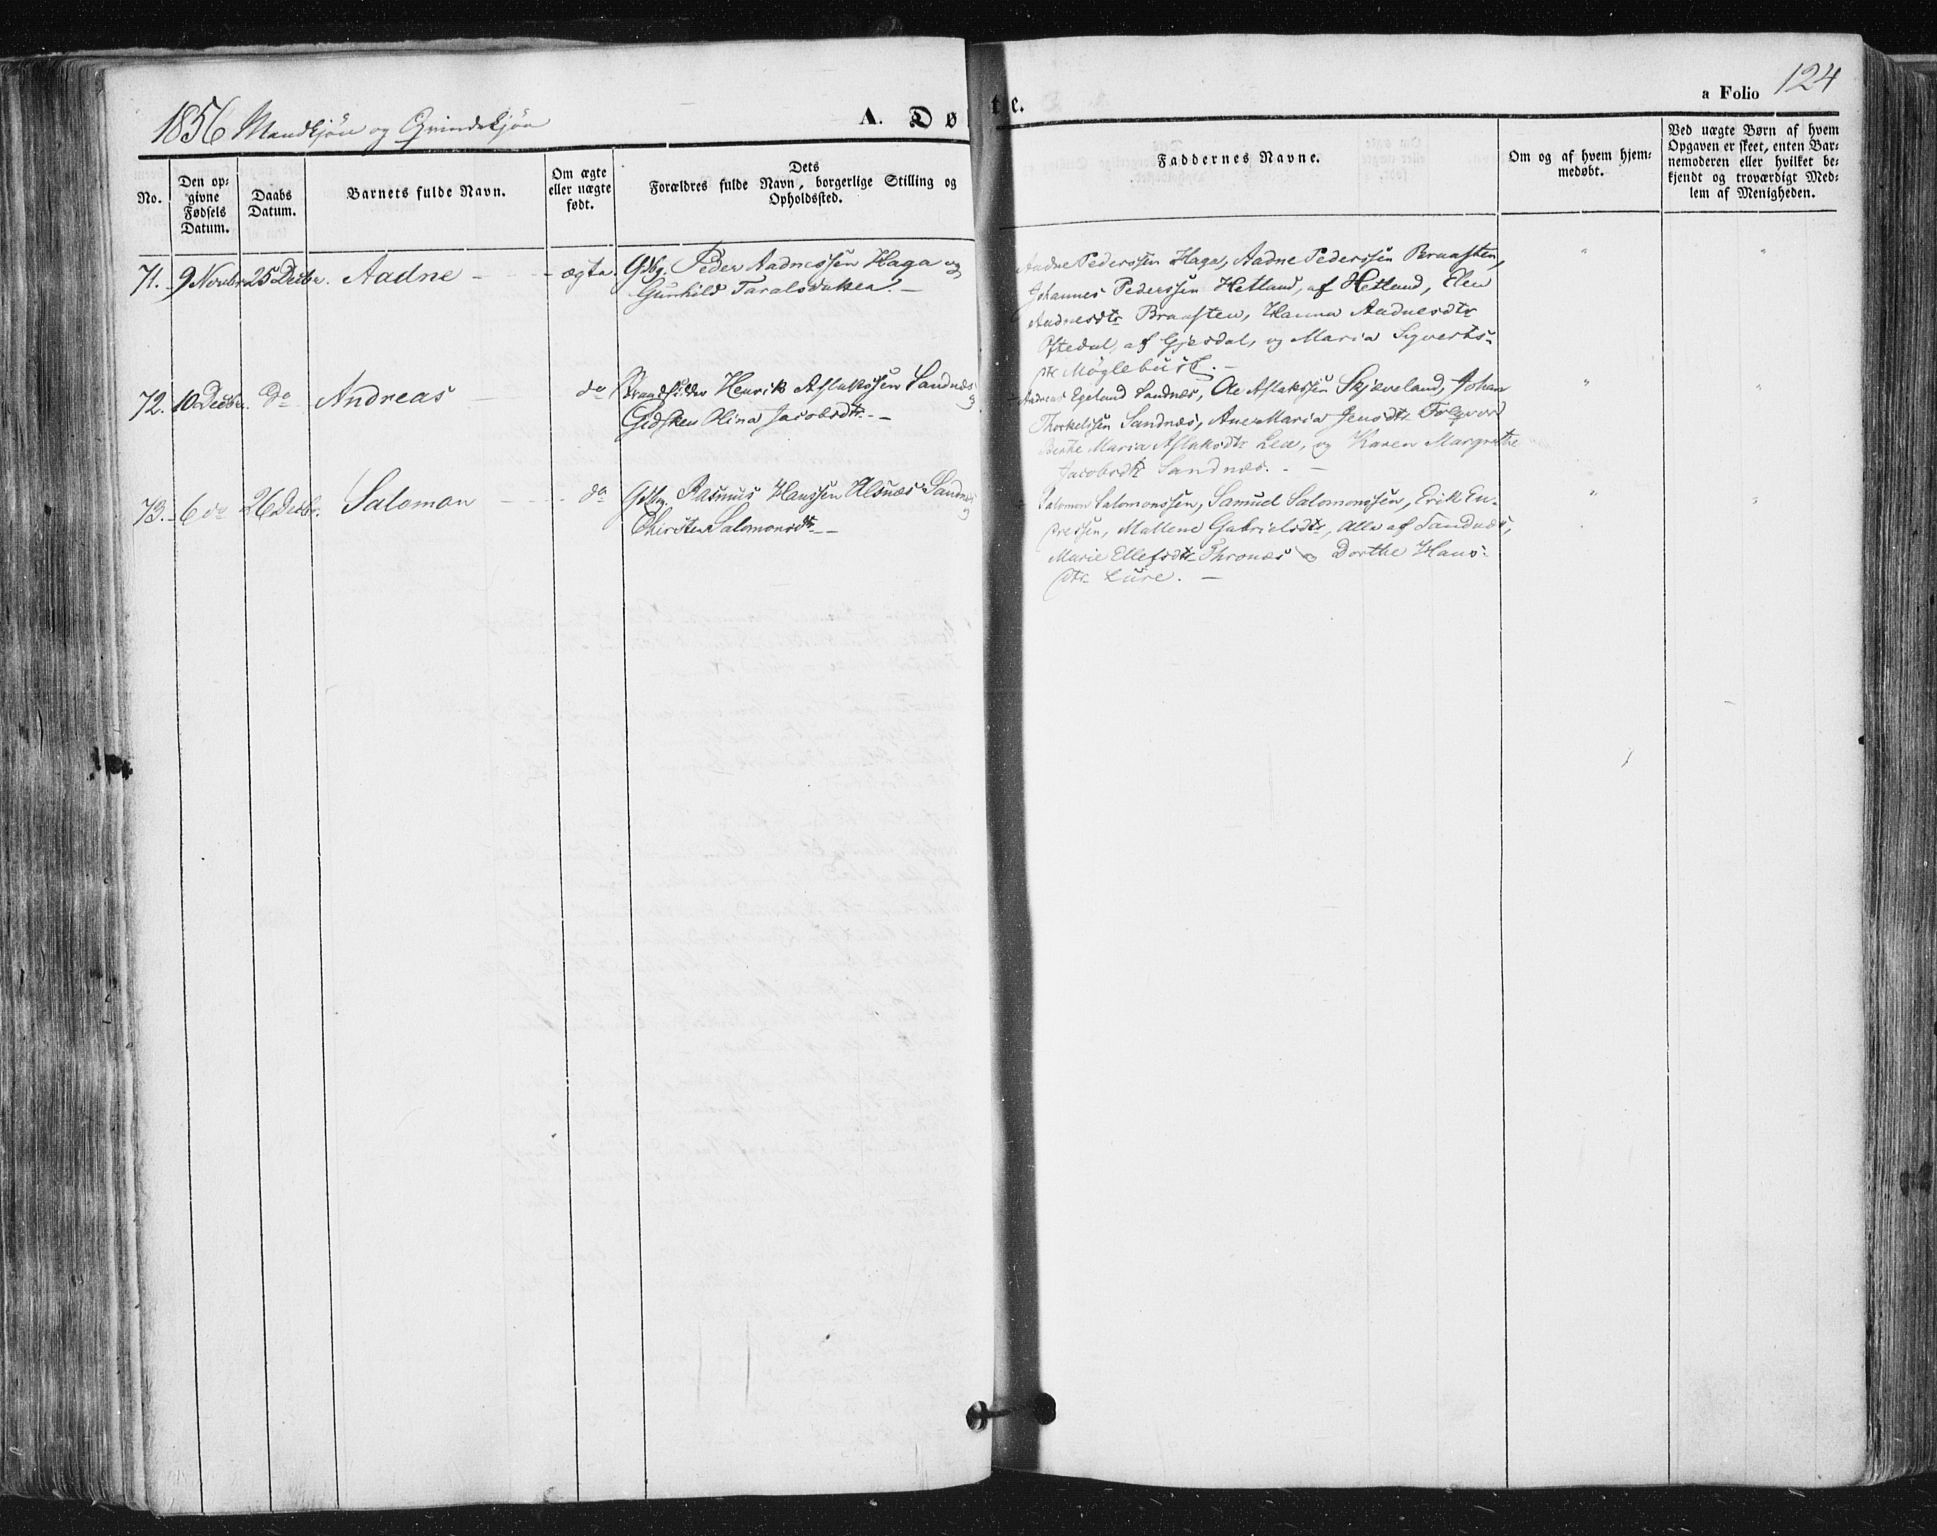 1856 Mandkjøn og Qvindekjøn
A. Døbte.
a Folio 124
No.
Den op-
givne
Fødsels
Datum.
Daabs
Datum.
Barnets fulde Navn.
Om ægte
eller uægte
født.
Dets
Forældres fulde Navn, borgerlige Stilling og
Opholdssted.
Faddernes Navne.
Om og af hvem hjem-
medøbt.
Ved uægte Børn af hvem
Opgaven er skeet, enten Bar-
nemoderen eller hvilket be-
kjendt og troværdigt Med-
lem af Menigheden.
71. 9 Novbr 25 Decbr. Aadne - ægte Gdbg. Peder Aadnessen Haga og
Gunhild Taralsdatter. -
Aadne Pederssen Haga, Aadne Pederssen Braasten, " "
Johannes Pederssen Hetland, af Hetland, Elen
Aadnesdtr Braasten, Hanna Aadnesdtr
Oftedal, af Gjesdal, og Maria Syverts-
dtr Møglebust. -
72. 10 Decbr. do Andreas - do Strandsidder Henrik Aslakssen Sandnæs og
Gidsken Olina Jacobsdtr. -
Andreas Egeland Sandnæs, Ole Aslakssen Skjæveland, Johan " "
Thorkelssen Sandnæs, Ane Maria Jensdtr Folqvord
Berthe Maria Aslaksdtr Lea, og Karen Margrethe
Jacobsdtr Sandnæs. -
73. 6 do 26 Decbr. Salomon - do Gdbg Rasmus Hanssen Alsnæs Sandnæs og
Chirsten Salomonsdtr -
Salomon Salomonssen, Samuel Salomonssen, Erik En- " "
dressen, Mallene Gabrielsdtr, Alle af Sandnæs,
Marie Ellefsdtr Thronæs og Dorthe Hans-
dtr Lure. -